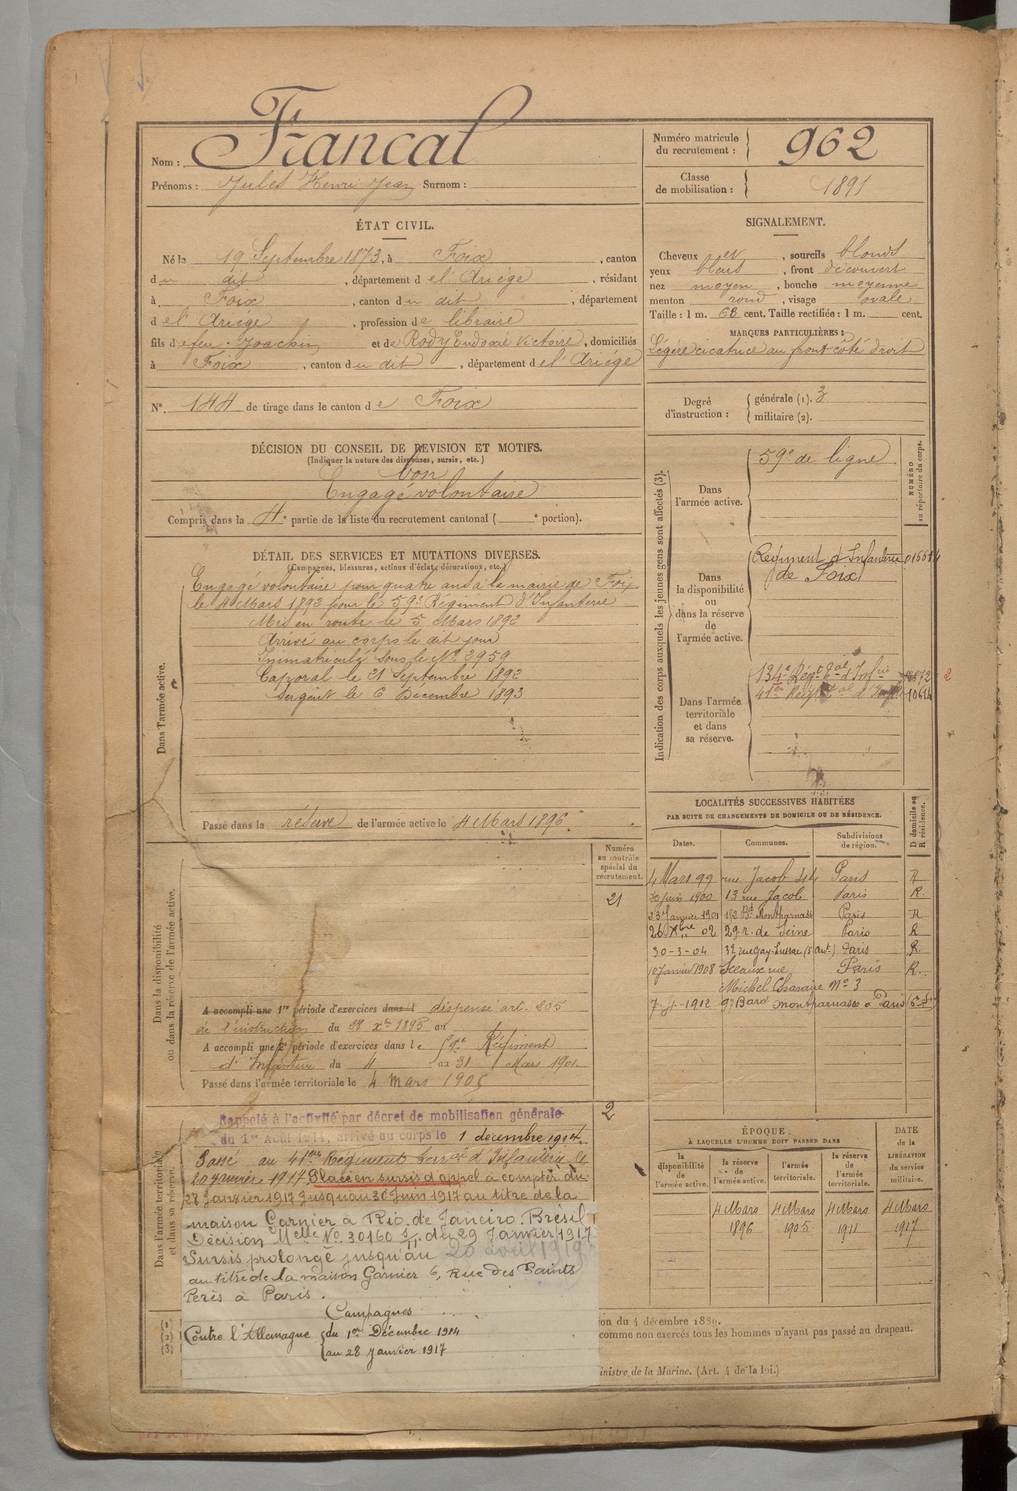 Nom : Francal
Prénoms : Jules Henri Jean Surnom :
Numéro matricule du recrutement : 962
Classe de mobilisation : 1891
ÉTAT CIVIL.
Né le 19 Septembre 1873, à Foix, canton
du dit, département de l'Ariège, résidant
à Foix, canton du dit, département
de l'Ariège, profession de libraire
fils de feu Joachim et de Rody Eudoxie Victoire, domiciliés
à Foix, canton du dit, département de l'Ariège
N° 144 de tirage dans le canton de Foix
SIGNALEMENT.
Cheveux et, sourcils blonds
yeux bleus, front découvert
nez moyen, bouche moyenne
menton rond, visage ovale
Taille : 1 m. 68 cent. Taille rectifiée : 1 m. cent.
MARQUES PARTICULIÈRES :
Légère cicatrice au front côté droit
Degré d'instruction : générale (1). 3
militaire (2).
DÉCISION DU CONSEIL DE REVISION ET MOTIFS.
(Indiquer la nature des dispenses, sursis, etc.)
bon
Engagé volontaire
Compris dans la 4e partie de la liste du recrutement cantonal ( e portion).
DÉTAIL DES SERVICES ET MUTATIONS DIVERSES.
(Campagnes, blessures, actions d'éclat, décorations, etc.)
Dans l'armée active.
Engagé volontaire pour quatre ans à la mairie de Foix
le 4 Mars 1892 pour le 59e Régiment d'Infanterie
Mis en route le 5 Mars 1892
Arrivé au corps le dit jour
Immatriculé sous le N° 2959
Caporal le 21 Septembre 1892
Sergent le 6 Décembre 1893
Passé dans la réserve de l'armée active le 4 Mars 1896
Indication des corps auxquels les jeunes gens sont affectés (3).
NUMÉRO au répertoire du corps.
Dans l'armée active.
59e de ligne
Dans la disponibilité ou dans la réserve de l'armée active.
Régiment d'Infanterie
de Foix
Dans l'armée territoriale et dans sa réserve.
134e Régt Tal d'Infie
2
LOCALITÉS SUCCESSIVES HABITÉES
PAR SUITE DE CHANGEMENTS DE DOMICILE OU DE RÉSIDENCE.
Dates. Communes. Subdivisions de région. D domicile ou R résidence.
4 Mars 99 rue Jacob 44 Paris R
30 juin 1900 13 rue Jacob Paris R.
23 Janvier 1901 162 Bd Montparnasse Paris R
26 Xbre 02 29 r. de Seine Paris R
30-3-04 32 rue gay-Lussac (5 arrt.) Paris R.
10 Janvier 1908 Sceaux rue Paris R.
Michel Charaire N° 3
7-4-1912 Bard montparnasse Paris
Numéro au contrôle spécial du recrutement.
21
Dans la disponibilité ou dans la réserve de l'armée active.
A accompli une 1re période d'exercices dans l dispensé art. 205
de l'instruction du 28 Xbre 1895 au
A accompli une 2e période d'exercices dans le 59e Régiment
d'Infanterie du 4 au 31 Mars 1901
Passé dans l'armée territoriale le 4 mars 1905
2
Dans l'armée territoriale et dans sa réserve.
Rappelé à l'activité par décret de mobilisation générale
du 1er Août 1914, arrivé au corps le 1 décembre 1914.
Passé au 41ème Régiment Terral d'Infanterie le
20 janvier 1917 Placé en sursis d'appel à compter du
28 Janvier 1917 jusqu'au 30 Juin 1917 au titre de la
maison Garnier à Rio de Janeiro. Brésil
Décision Melle No 30160 du 29 Janvier 1917
Sursis prolongé jusqu'au
au titre de la maison Garnier 6, Rue des Saints
Pères à Paris.
Campagnes
Contre l'Allemagne du 1er Décembre 1914
au 28 Janvier 1917
ÉPOQUE
À LAQUELLE L'HOMME DOIT PASSER DANS
la disponibilité de l'armée active. la réserve de l'armée active. l'armée territoriale. la réserve de l'armée territoriale. DATE de la LIBÉRATION du service militaire.
4 Mars 4 Mars 4 Mars 4 Mars
1896 1905 1911 1917
(1)
(2)
(3)
on du 4 décembre 1889.
comme non exercés tous les hommes n'ayant pas passé au drapeau.
inistre de la Marine. (Art. 4 de la loi.)